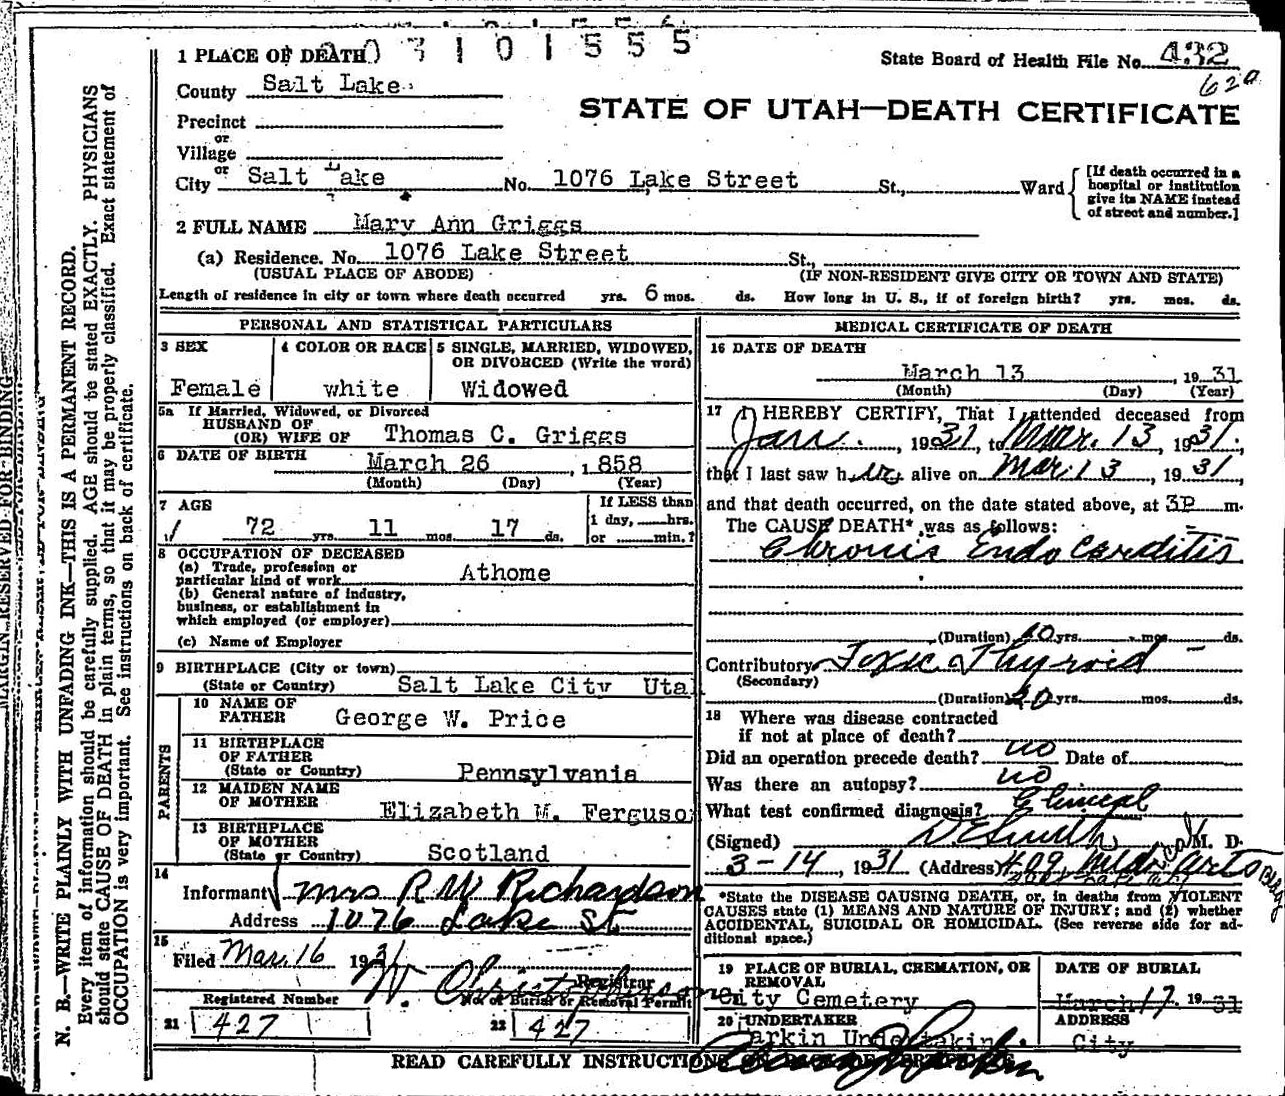 1 PLACE OF DEATH 3 1 0 1 5 5 5
State Board of Health File No. 432
620
County Salt Lake
STATE OF UTAH—DEATH CERTIFICATE
Precinct
or
Village
or
City Salt Lake No. 1076 Lake Street St., Ward
[If death occurred in a
hospital or institution
give its NAME instead
of street and number.]
2 FULL NAME Mary Ann Griggs
(a) Residence. No. 1076 Lake Street St.,
(USUAL PLACE OF ABODE) (IF NON-RESIDENT GIVE CITY OR TOWN AND STATE)
Length of residence in city or town where death occurred yrs. 6 mos. ds. How long in U. S., if of foreign birth? yrs. mos. ds.
PERSONAL AND STATISTICAL PARTICULARS
3 SEX
Female
4 COLOR OR RACE
white
5 SINGLE, MARRIED, WIDOWED,
OR DIVORCED (Write the word)
Widowed
5a If Married, Widowed, or Divorced
HUSBAND OF
(OR) WIFE OF Thomas C. Griggs
6 DATE OF BIRTH March 26, 1858
(Month) (Day) (Year)
7 AGE
72 yrs. 11 mos. 17 ds.
If LESS than
1 day, hrs.
or min.?
8 OCCUPATION OF DECEASED
(a) Trade, profession or
particular kind of work Athome
(b) General nature of industry,
business, or establishment in
which employed (or employer)
(c) Name of Employer
9 BIRTHPLACE (City or town)
(State or Country) Salt Lake City Uta
PARENTS
10 NAME OF
FATHER George W. Price
11 BIRTHPLACE
OF FATHER
(State or Country) Pennsylvania
12 MAIDEN NAME
OF MOTHER Elizabeth M. Ferguso
13 BIRTHPLACE
OF MOTHER
(State or Country) Scotland
14
Informant Mrs R W Richardson
Address 1076 Lake St
15
Filed Mar. 16 1931
W. Christopherson
Registrar
Registered Number
21 427
No. of Burial or Removal Permit
22 427
MEDICAL CERTIFICATE OF DEATH
16 DATE OF DEATH
March 13, 1931
(Month) (Day) (Year)
17 I HEREBY CERTIFY, That I attended deceased from
Jan., 1931, to Mar. 13, 1931.
that I last saw her alive on Mar. 13, 1931,
and that death occurred, on the date stated above, at 3P m.
The CAUSE DEATH* was as follows:
Chronic Endo Carditis
(Duration) yrs. mos. ds.
Contributory Toxic Thyroid
(Secondary)
(Duration) 20 yrs. mos. ds.
18 Where was disease contracted
if not at place of death?
Did an operation precede death? no Date of
Was there an autopsy? no
What test confirmed diagnosis? Clinical
(Signed) D E Smith M. D.
3-14, 1931 (Address) 409 Medical Arts Bldg
*State the DISEASE CAUSING DEATH, or, in deaths from VIOLENT
CAUSES state (1) MEANS AND NATURE OF INJURY; and (2) whether
ACCIDENTAL, SUICIDAL OR HOMICIDAL. (See reverse side for ad-
ditional space.)
19 PLACE OF BURIAL, CREMATION, OR
REMOVAL
City Cemetery
DATE OF BURIAL
March 17. 1931
20 UNDERTAKER
arkin Undertakin
ADDRESS
City
READ CAREFULLY INSTRUCTIONS
MARGIN RESERVED FOR BINDING
N. B.—WRITE PLAINLY WITH UNFADING INK—THIS IS A PERMANENT RECORD.
Every item of information should be carefully supplied. AGE should be stated EXACTLY. PHYSICIANS
should state CAUSE OF DEATH in plain terms, so that it may be properly classified. Exact statement of
OCCUPATION is very important. See instructions on back of certificate.